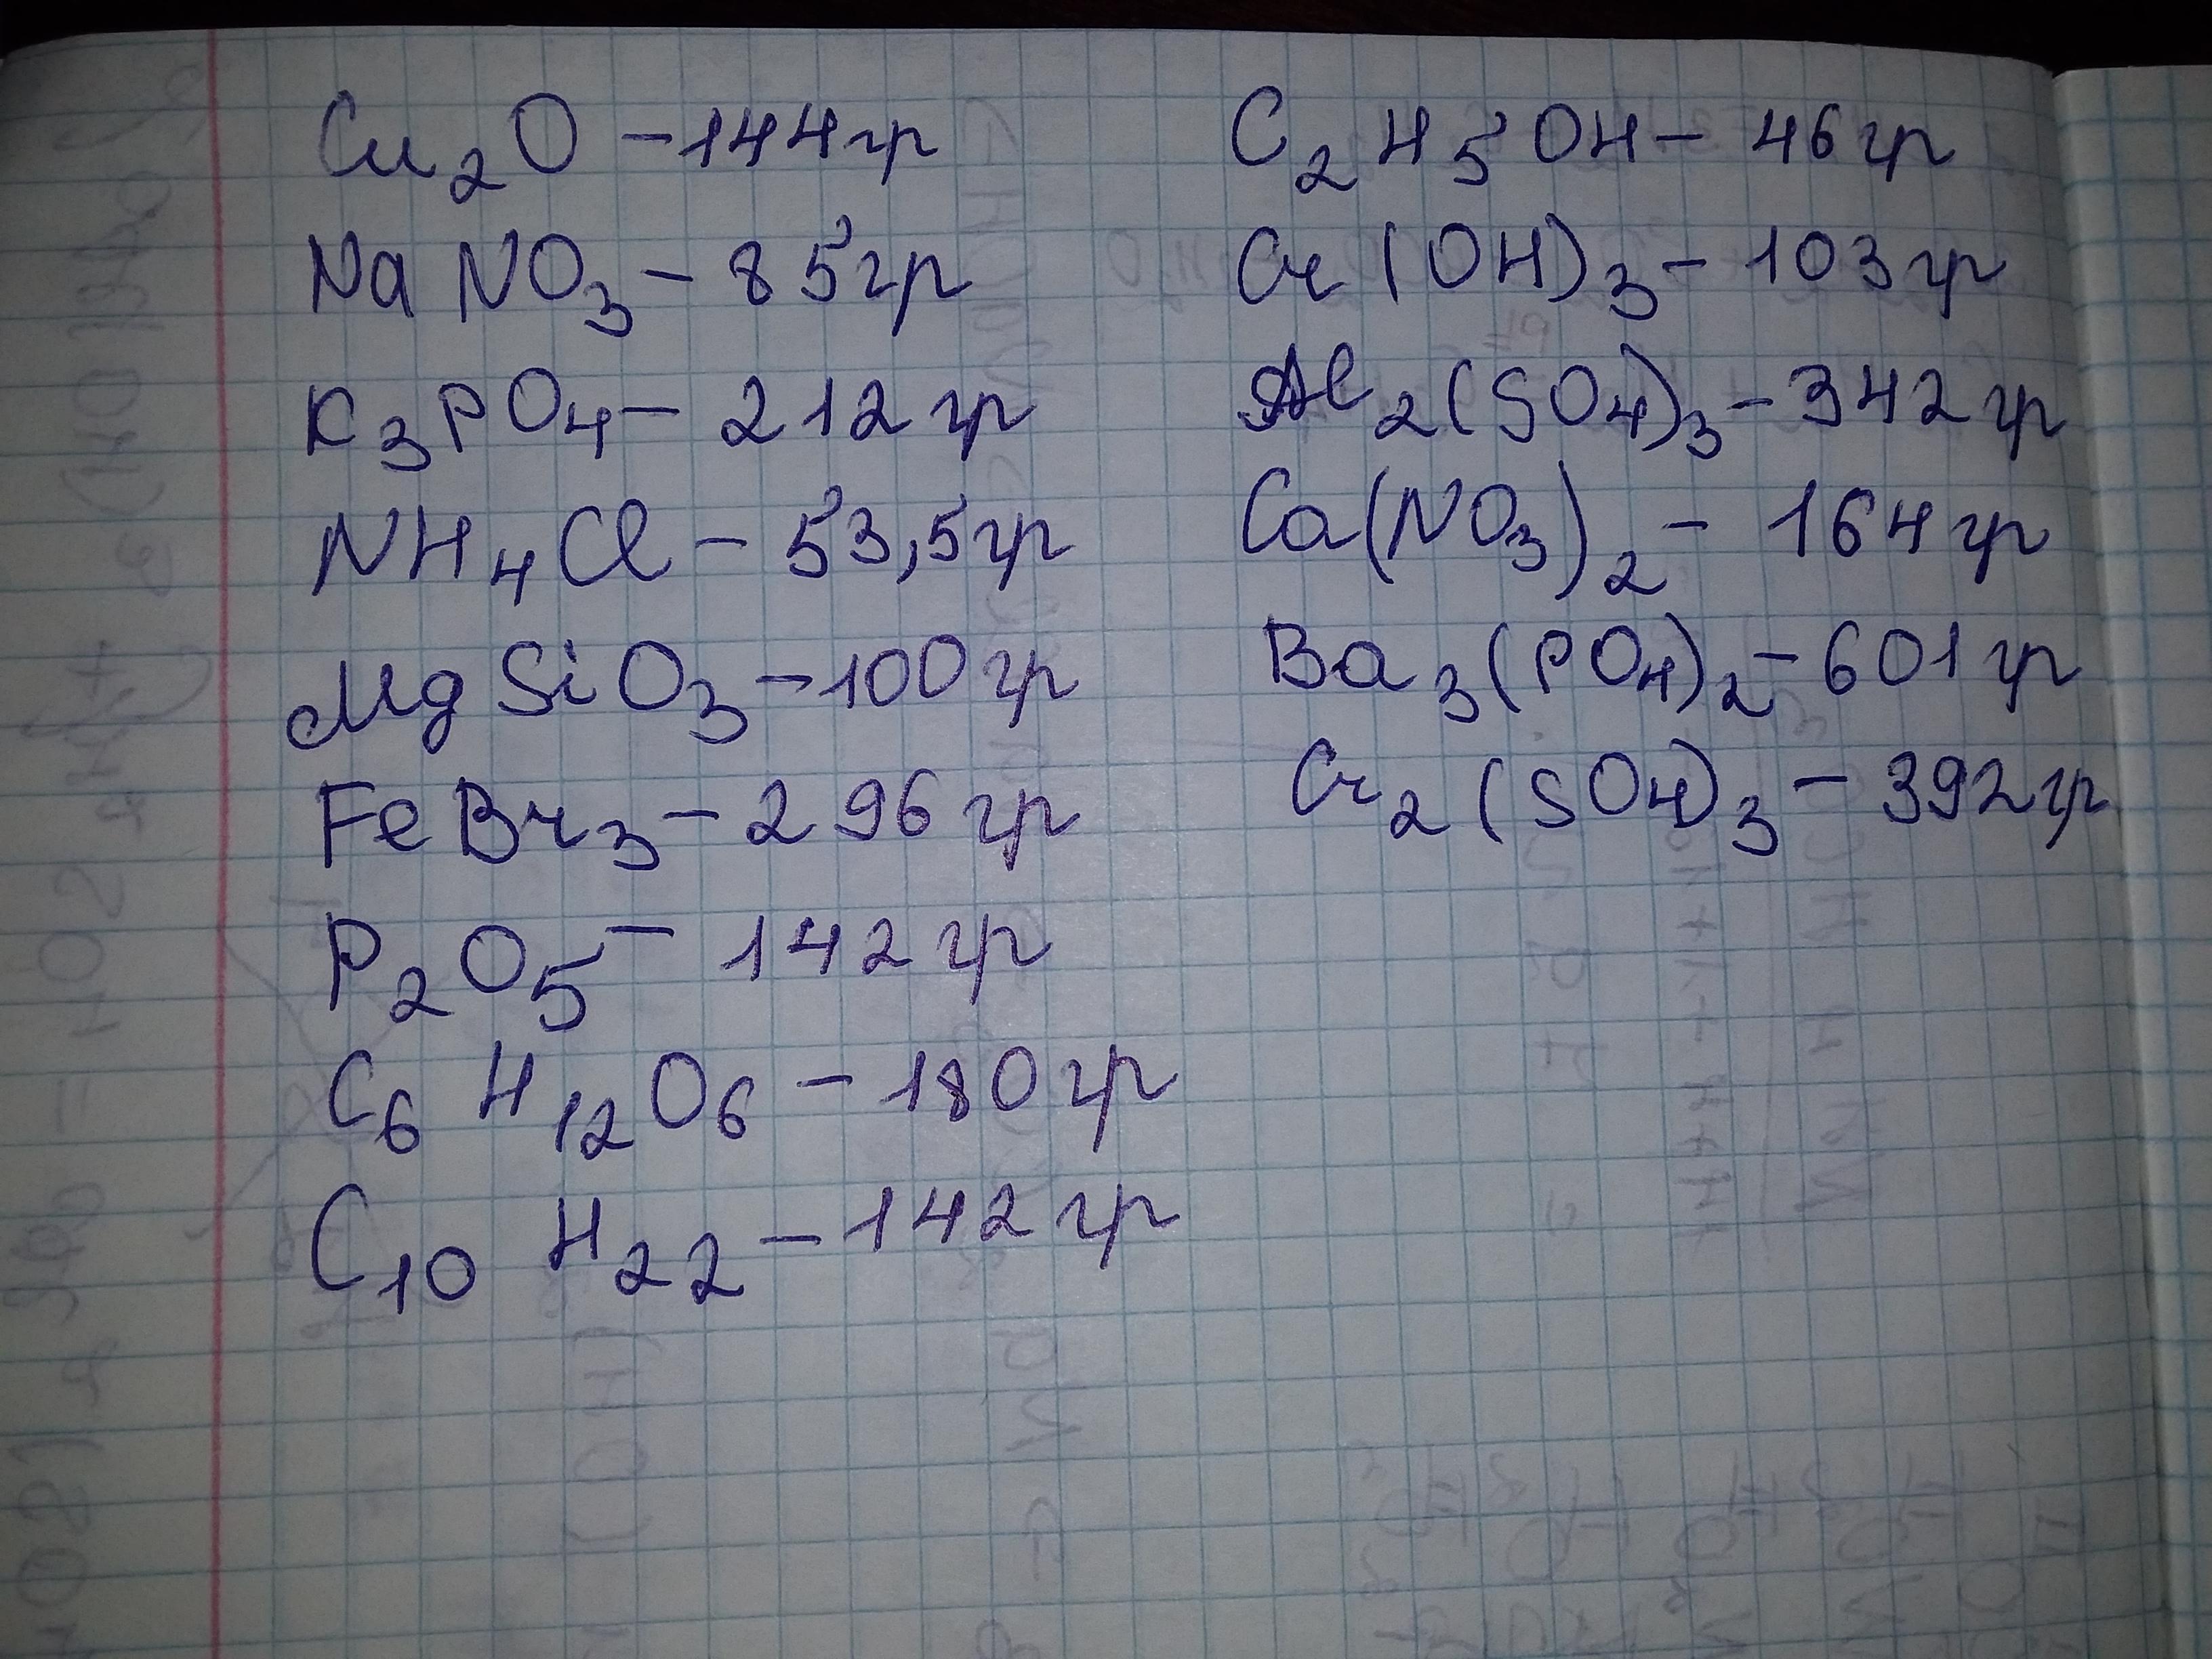 Cu₂O – 144гр
NaNO₃ – 85гр
K₃PO₄ – 212гр
NH₄Cl – 53,5гр
MgSiO₃ – 100гр
FeBr₃ – 296гр
P₂O₅ – 142гр
C₆H₁₂O₆ – 180гр
C₁₀H₂₂ – 142гр
C₂H₅OH – 46гр
Cr(OH)₃ – 103гр
Al₂(SO₄)₃ – 342гр
Ca(NO₃)₂ – 164гр
Ba₃(PO₄)₂ – 601гр
Cr₂(SO₄)₃ – 392гр